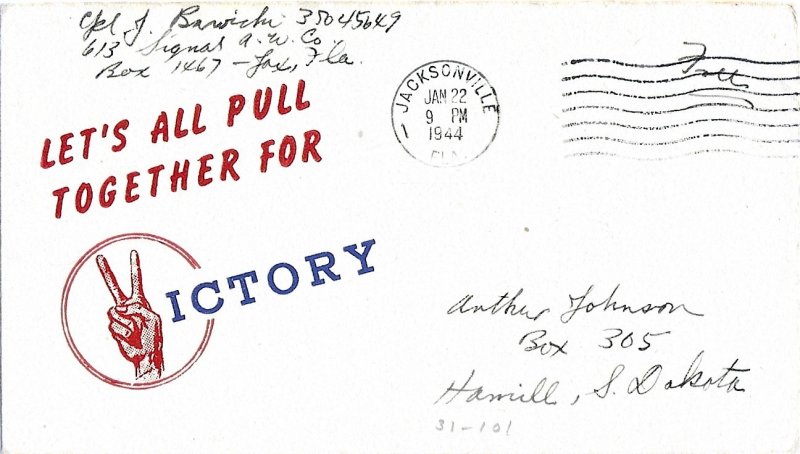 Cpl J. Barwick 35045649
613 Signal A.W. Co.
Box 1467 - Jax, Fla.
LET'S ALL PULL
TOGETHER FOR
ICTORY
JACKSONVILLE
JAN 22
9 PM
1944
FLA.
Free
Arthur Johnson
Box 305
Hamill, S. Dakota
31-101